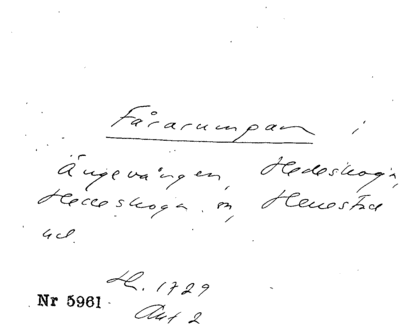 Fårarumpan i
Ängavången, Hedeskoga,
Hedeskoga sn, Herrestad
hd.
H. 1729
Akt 2
Nr 5961